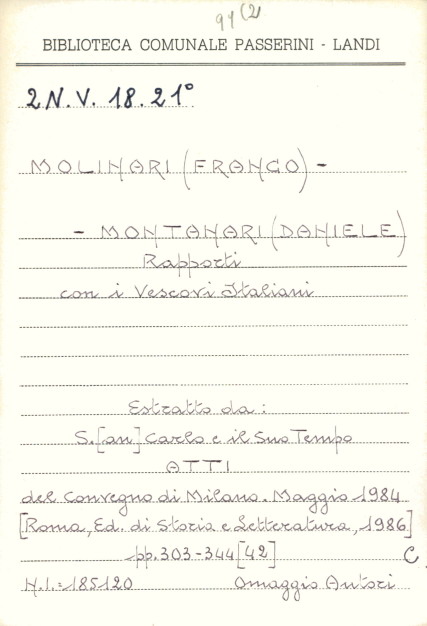 94 (2)
BIBLIOTECA COMUNALE PASSERINI - LANDI
2 N. V. 18. 21°
MOLINARI (FRANCO) -
- MONTANARI (DANIELE)
Rapporti
con i Vescovi Italiani
Estratto da:
S.[an] Carlo e il Suo Tempo
ATTI
del Convegno di Milano. Maggio 1984
[Roma, Ed. di Storia e Letteratura, 1986]
pp. 303-344 [42]
C
N.I.=185120 Omaggio Autori